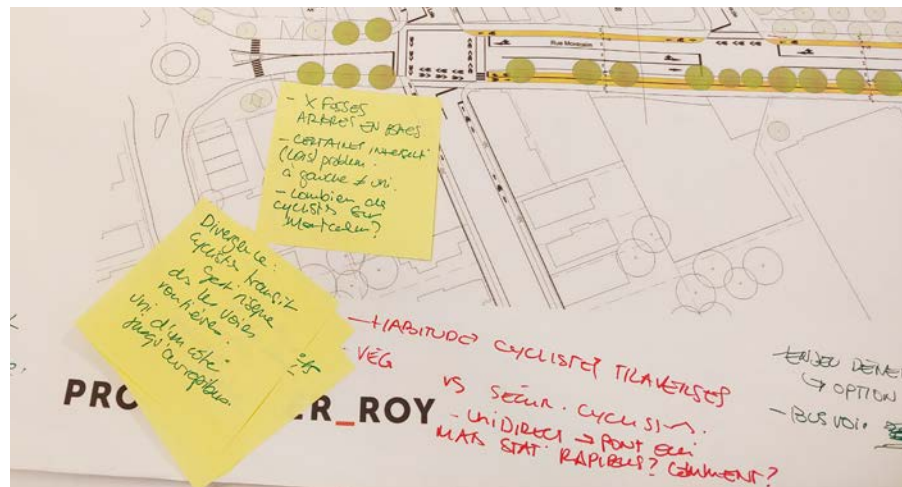 Rue Montcalm
- X FOSSES
ARBRES EN BAIES
- CERTAINES INTERSECT.
(LOIS) problem.
à gauche ≠ uni.
- Combien de
cyclistes sur
Montcalm?
Divergence:
cycliste transit
risque
ds les voies
routières.
uni d'un côté
jusqu'au rapibus.
- HABITUDE CYCLISTES TRAVERSES
VÉG
VS SÉCUR. CYCLISTES.
- UNIDIRECT → PONT OUI
MAIS STAT RAPIBUS? COMMENT?
- ENJEU DÉNE
↳ OPTION
- BUS VOI.
PRO
ER_ROY